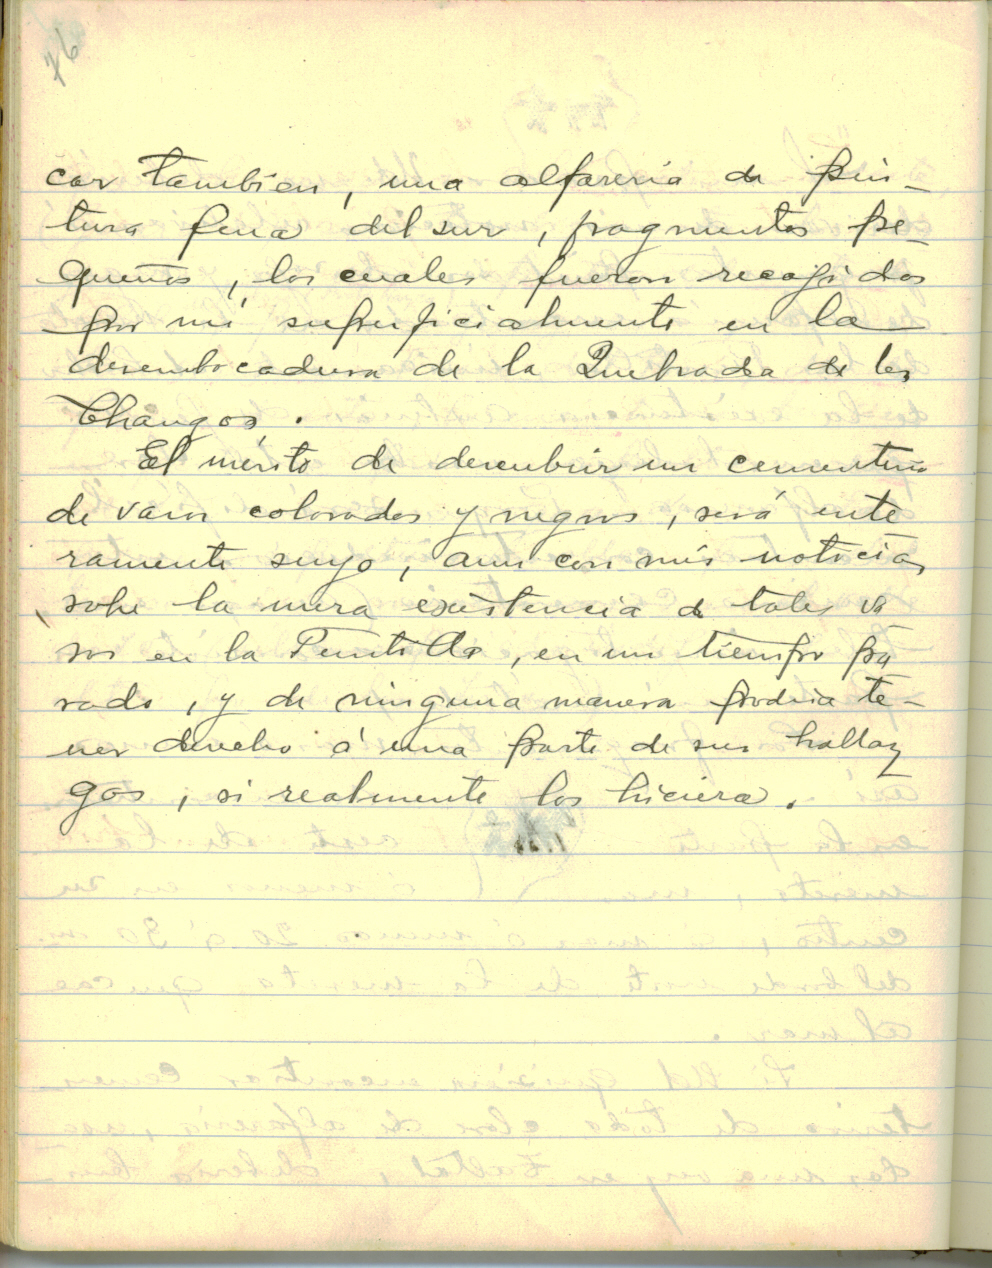 76
car tambien, una alfareria de pin-
tura fina del sur, fragmentos pe-
queños, los cuales fueron recogidos
por mí superficialmente en la
desembocadura de la Quebrada de los
Changos.
El mérito de descubrir un cementerio
de vasos colorados y negros, será ente
ramente suyo, aun con mis noticias
sobre la mera existencia de tales va
sos en la Puntilla, en un tiempo pa
sado, y de ninguna manera podria te-
ner derecho á una parte de sus hallaz
gos, si realmente los hiciera.